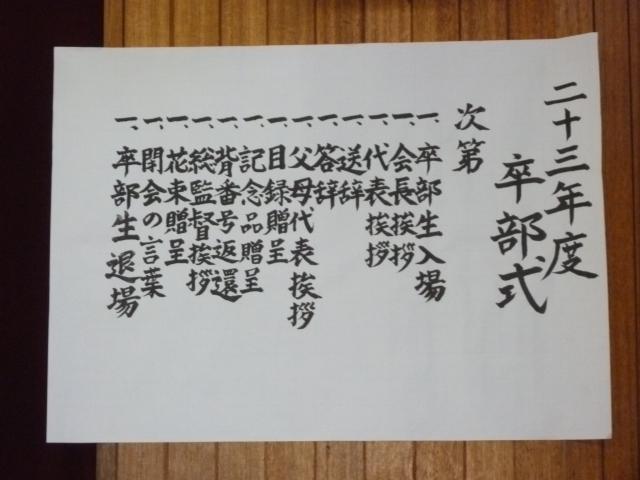 二十三年度
卒部式
次第
一、卒部生入場
一、会長挨拶
一、代表挨拶
一、送辞
一、答辞
一、父母代表挨拶
一、目録贈呈
一、記念品贈呈
一、背番号返還
一、総監督挨拶
一、花束贈呈
一、閉会の言葉
一、卒部生退場